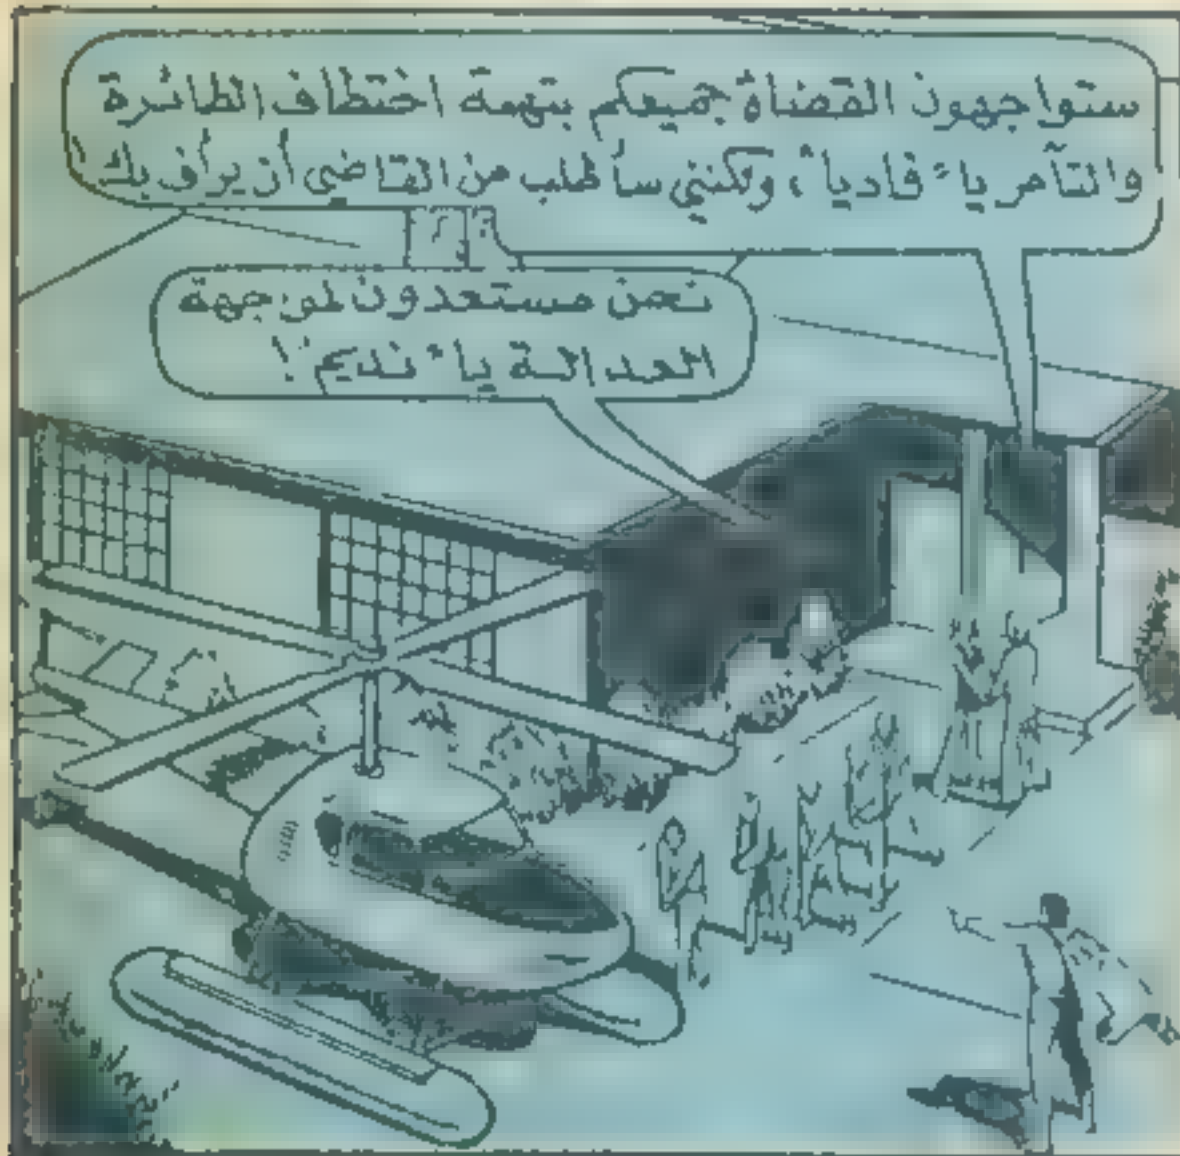 ستواجهون القضاة جميعكم بتهمة اختطاف الطائرة
والتآمر يا "فاديا"، ولكنني سأطلب من القاضي أن يرأف بك
نحن مستعدون لمواجهة
العدالة يا "نديم"!